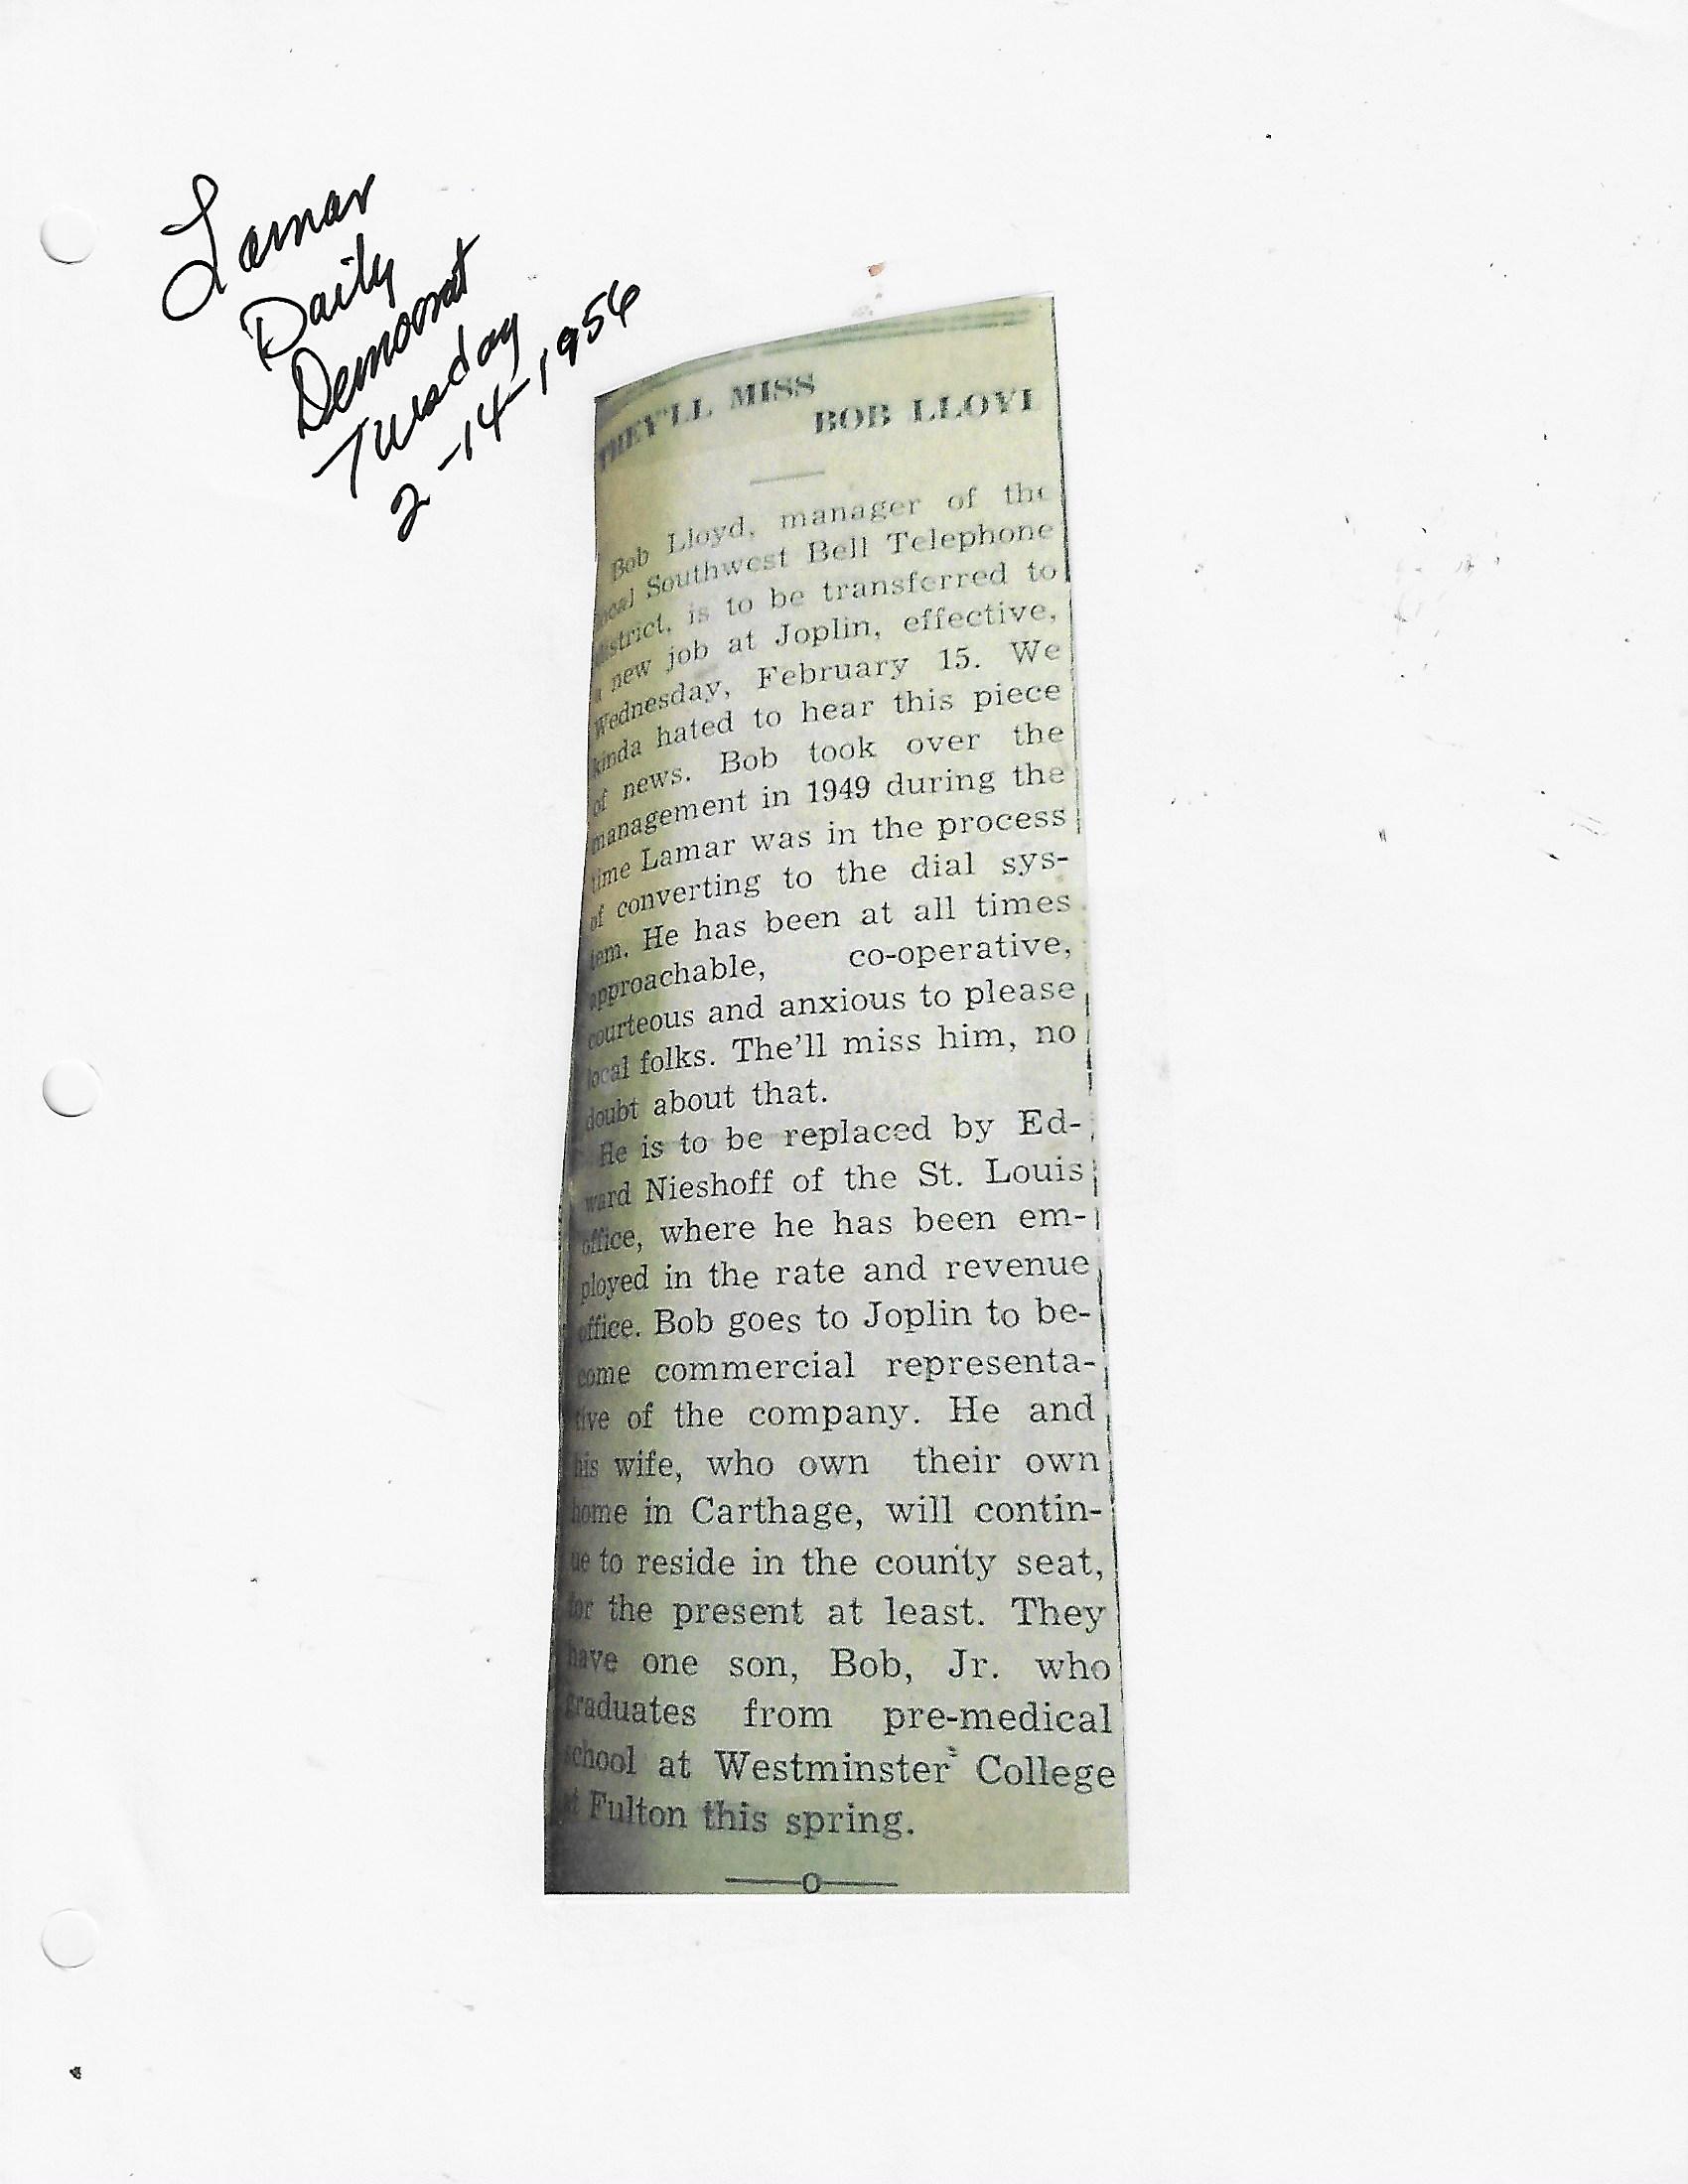 Lamar
Daily
Democrat
Tuesday
2-14-1956
THEY'LL MISS
BOB LLOYD
Bob Lloyd, manager of the
local Southwest Bell Telephone
district, is to be transferred to
a new job at Joplin, effective,
Wednesday, February 15. We
kinda hated to hear this piece
of news. Bob took over the
management in 1949 during the
time Lamar was in the process
of converting to the dial sys-
tem. He has been at all times
approachable, co-operative,
courteous and anxious to please
local folks. The'll miss him, no
doubt about that.
He is to be replaced by Ed-
ward Nieshoff of the St. Louis
office, where he has been em-
ployed in the rate and revenue
office. Bob goes to Joplin to be-
come commercial representa-
tive of the company. He and
his wife, who own their own
home in Carthage, will contin-
ue to reside in the county seat,
for the present at least. They
have one son, Bob, Jr. who
graduates from pre-medical
school at Westminster College
at Fulton this spring.